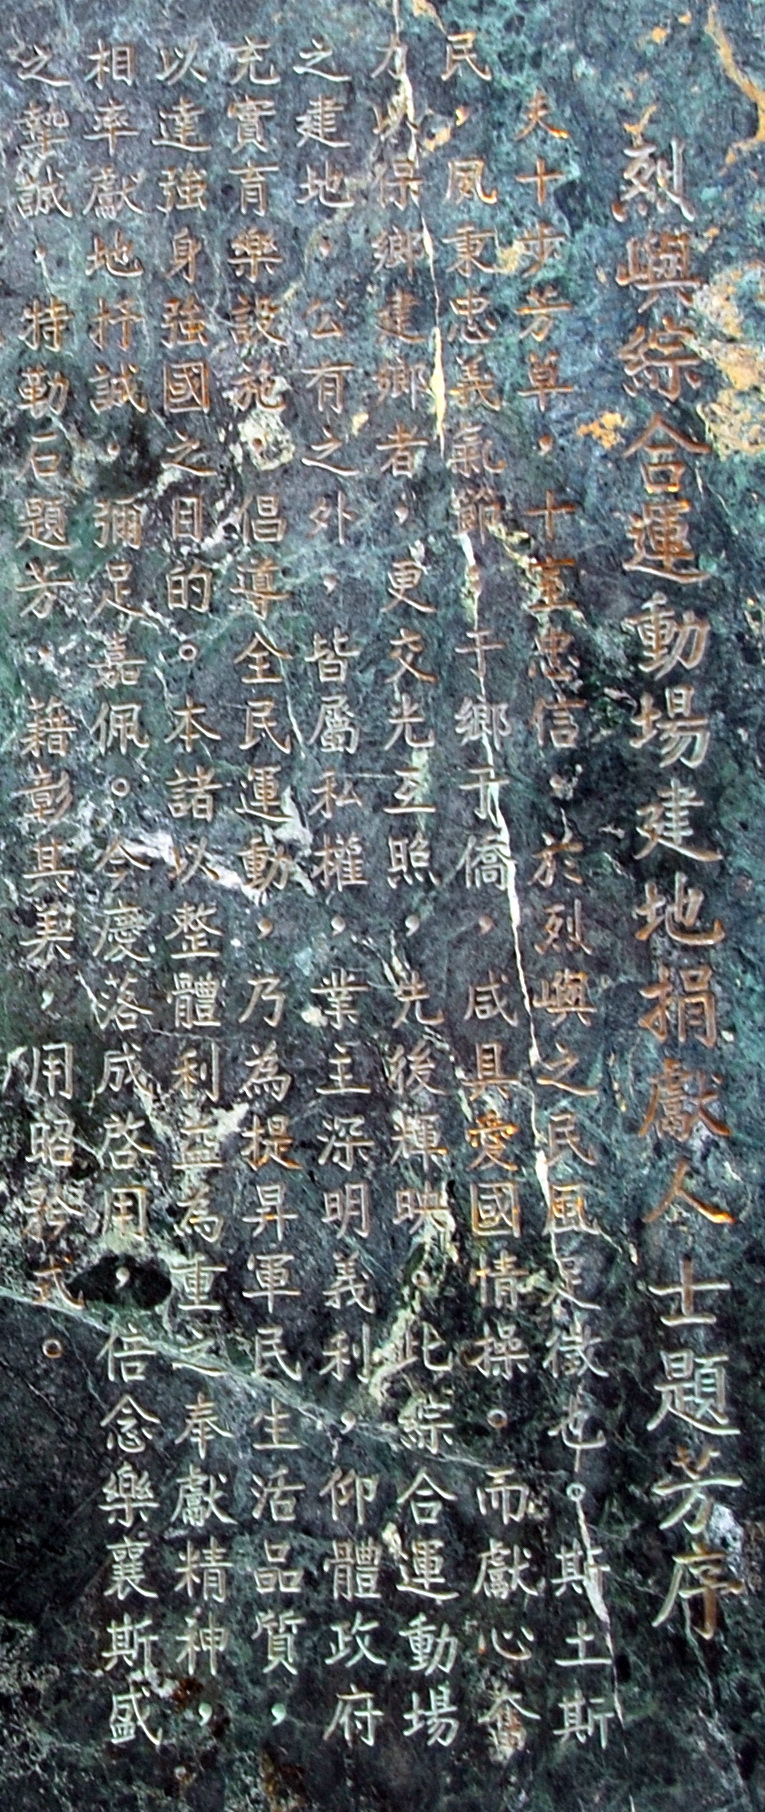 烈嶼綜合運動場建地捐獻人士題芳序
夫十步芳草，十室忠信。於烈嶼之民風足徵也。斯土斯
民，風秉忠義氣節，于鄉于僑，咸具愛國情操。而獻心奮
力以保鄉建鄉者，更交光互照，先後輝映。此綜合運動場
之建地，公有之外，皆屬私權，業主深明義利，仰體政府
充實育樂設施，倡導全民運動，乃為提昇軍民生活品質，
以達強身強國之目的。本諸以整體利益為重之奉獻精神，
相率獻地抒誠，彌足嘉佩。今慶落成啓用，倍念樂襄斯盛
之摯誠，特勒石題芳，藉彰其義，用昭矜式。